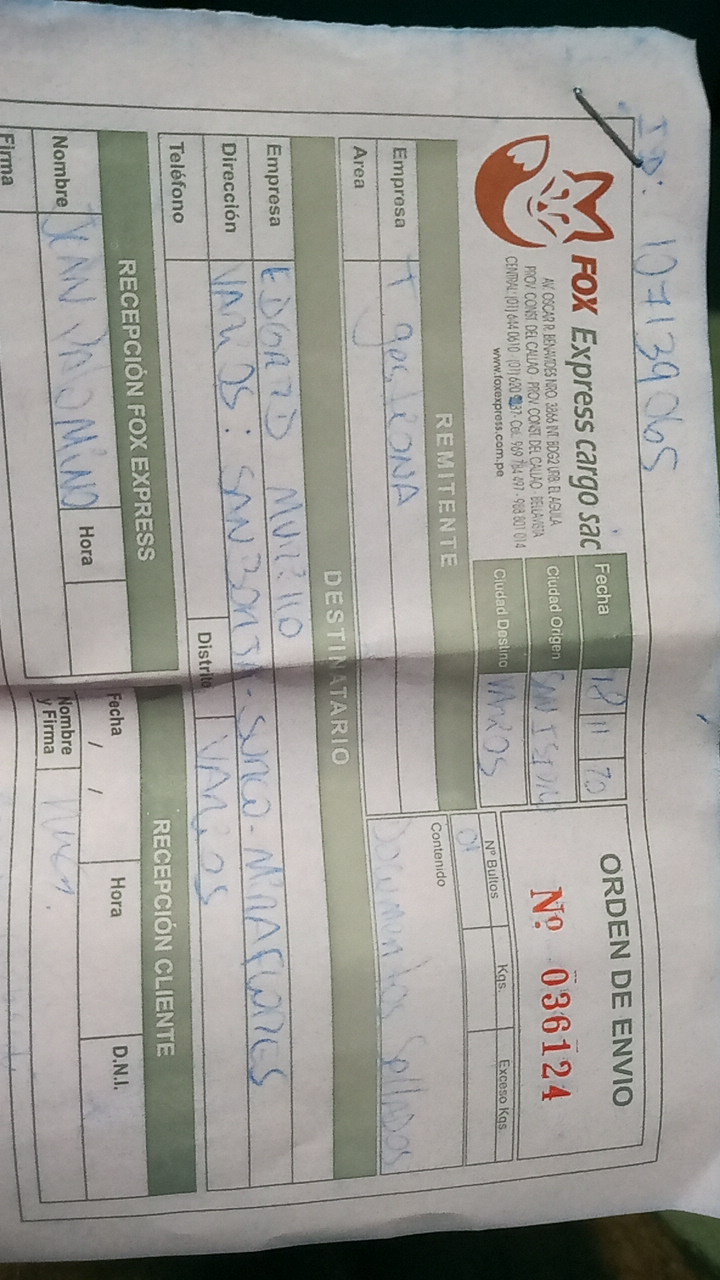 ID: 107139065
FOX Express cargo sac
AV. OSCAR R. BENAVIDES NRO. 3866 INT. BDG2 URB. EL AGUILA
PROV. CONST. DEL CALLAO - PROV. CONST. DEL CALLAO - BELLAVISTA
CENTRAL: (01) 644 0610 - (01) 620 Cel. 969 784 497 - 988 801 014
www.foxexpress.com.pe
Fecha 18 11 20
Ciudad Origen SAN ISIDRO
Ciudad Destino VARIOS
ORDEN DE ENVIO
Nº 036124
Nº Bultos Kgs. Exceso Kgs
01
REMITENTE
Empresa T gestiona
Area
Contenido
Documentos Sellados
DESTINATARIO
Empresa EDGARD MURILLO
Dirección VARIOS: SAN BORJA - SURCO - MIRAFLORES
Teléfono
Distrito VARIOS
RECEPCIÓN FOX EXPRESS
Nombre JEAN PALOMINO
Hora
Firma
RECEPCIÓN CLIENTE
Fecha / /
Hora
D.N.I.
Nombre
y Firma